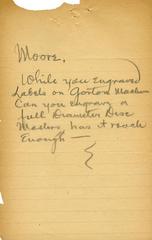 Moore,
While you Engraved
Labels on Gorton Machine
Can you engrave a
full Diameter Disc
Masters has it reach
Enough —